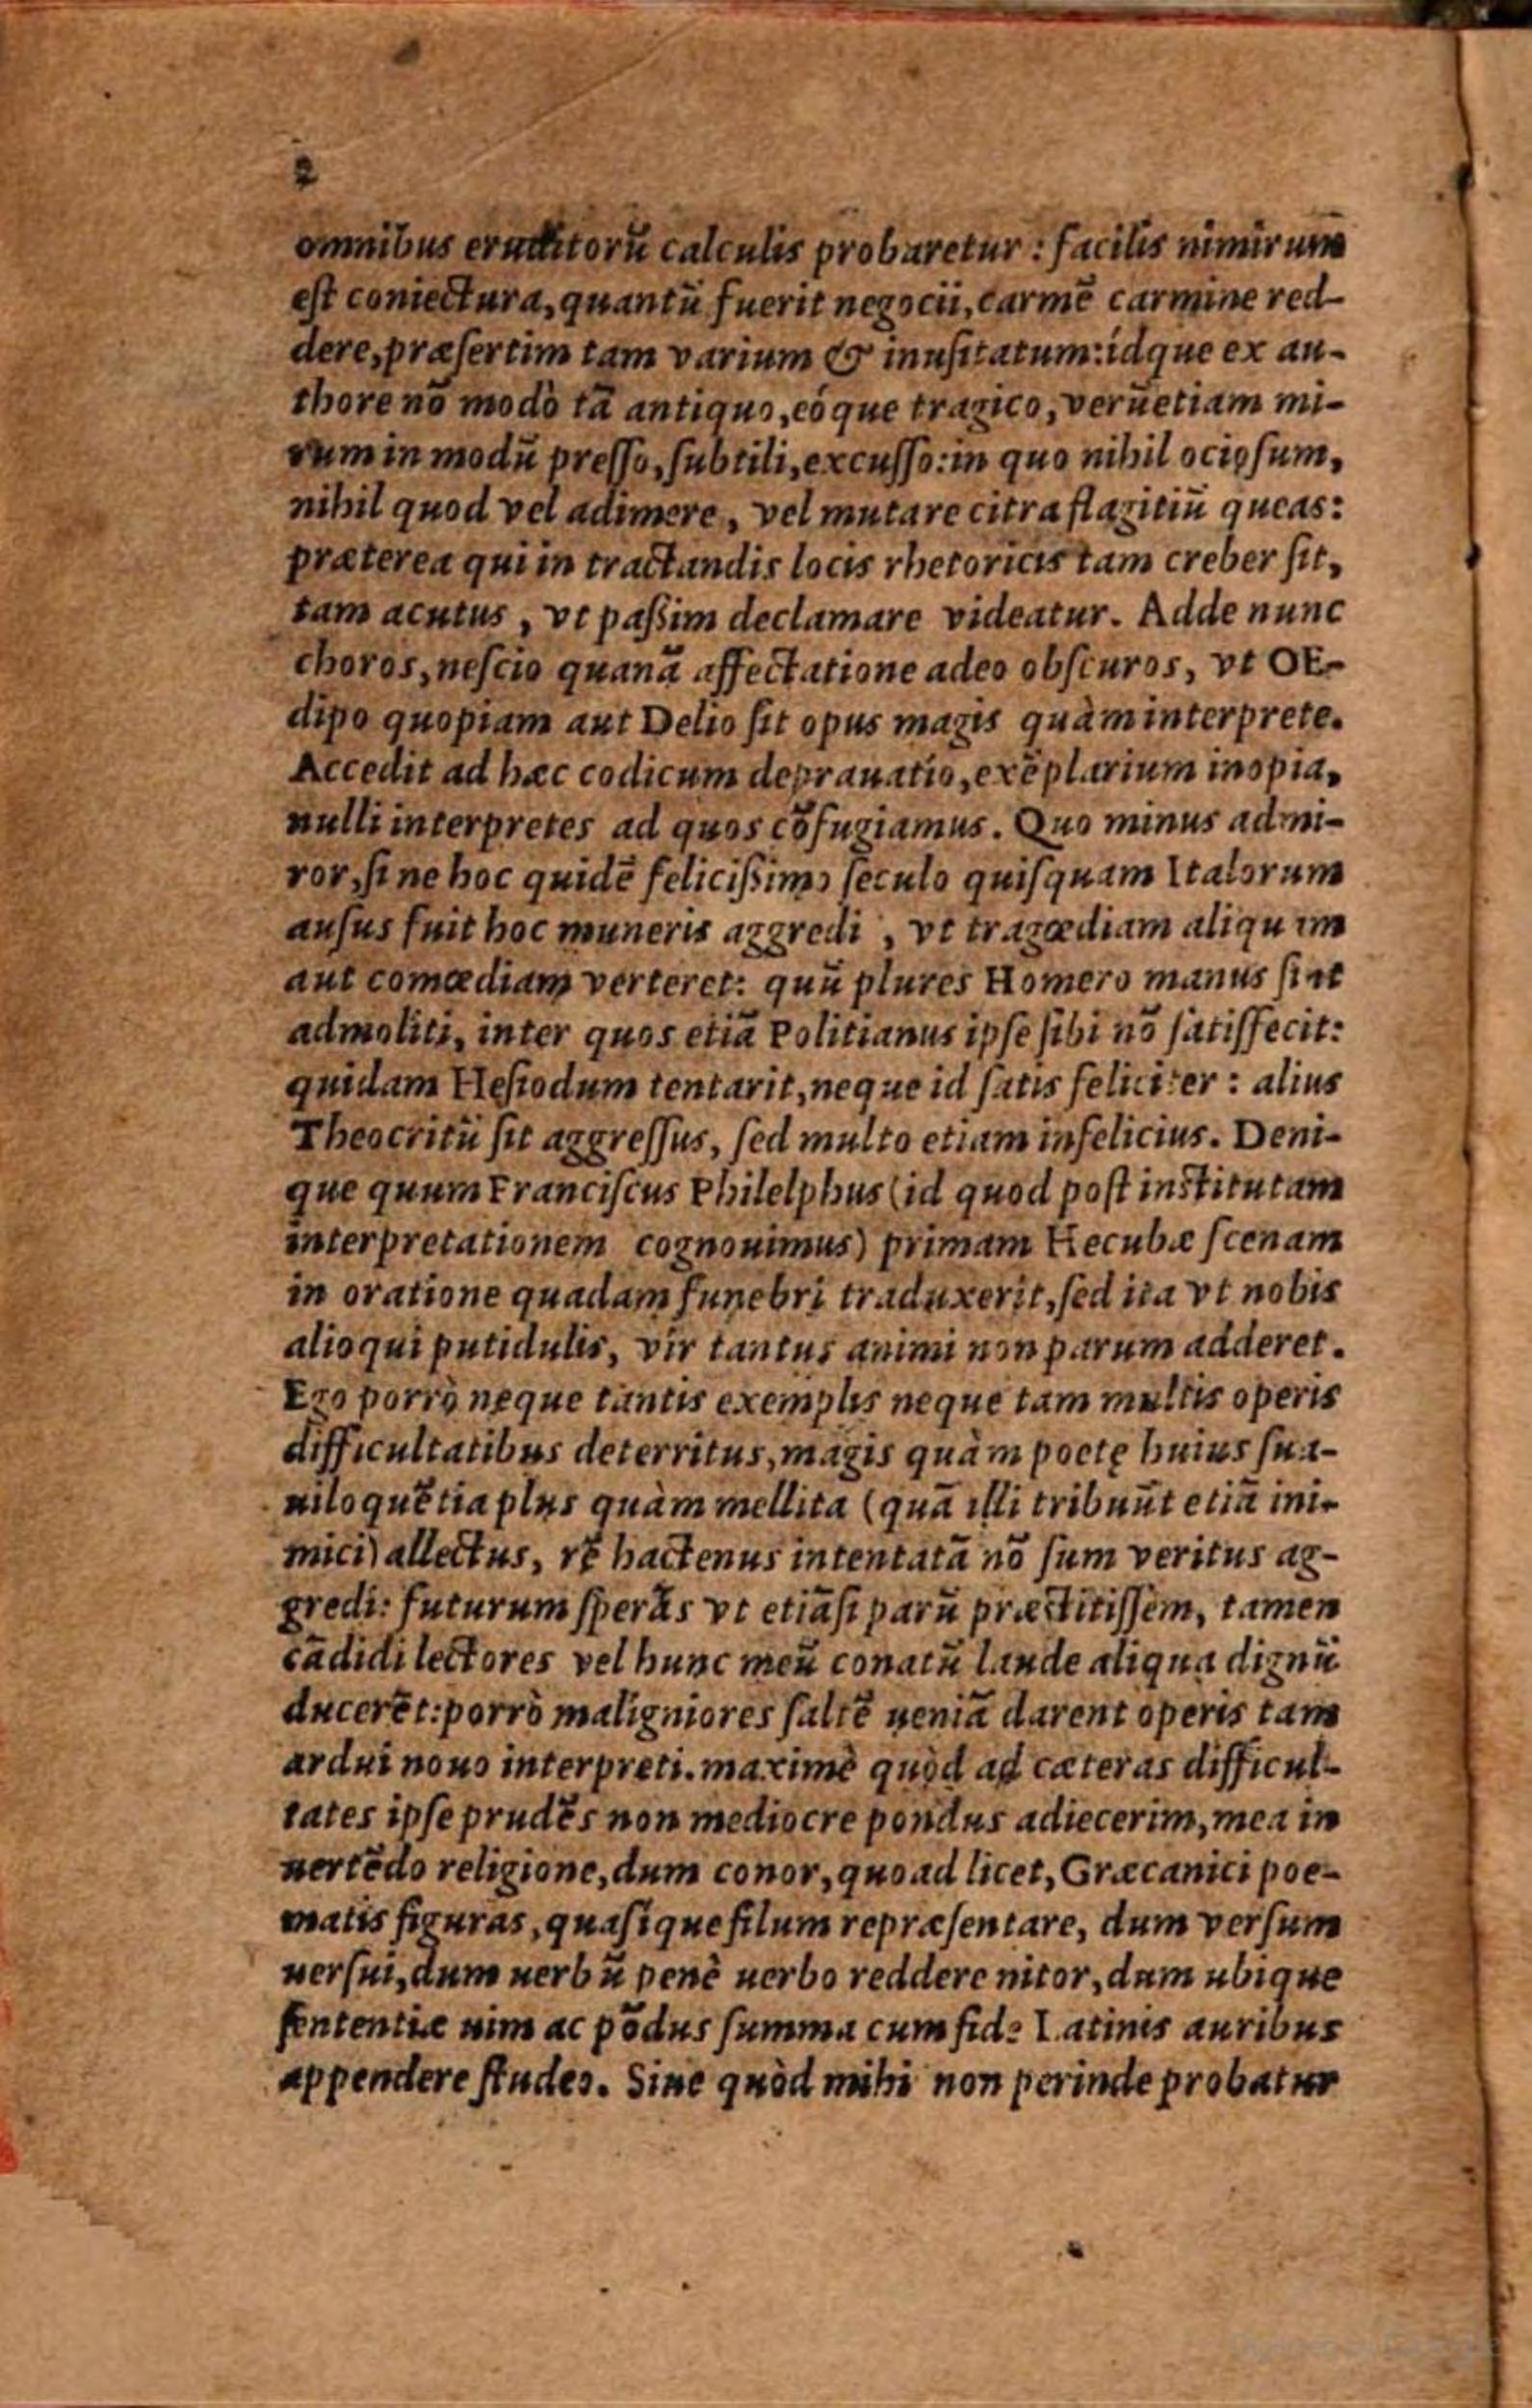 2
omnibus eruditorũ calculis probaretur : facilis nimirum
est coniectura, quantũ fuerit negocii, carmẽ carmine red-
dere, præsertim tam varium & inusitatum: idque ex au-
thore nõ modò tã antiquo, eóque tragico, verũetiam mi-
rum in modũ presso, subtili, excusso: in quo nihil ociosum,
nihil quod vel adimere, vel mutare citra flagitiũ queas:
præterea qui in tractandis locis rhetoricis tam creber sit,
tam acutus, vt passim declamare videatur. Adde nunc
choros, nescio quanã affectatione adeo obscuros, vt OE-
dipo quopiam aut Delio sit opus magis quàm interprete.
Accedit ad hæc codicum deprauatio, exẽplarium inopia,
nulli interpretes ad quos cõfugiamus. Quo minus admi-
ror, si ne hoc quidẽ felicissimo seculo quisquam Italorum
ausus fuit hoc muneris aggredi, vt tragœdiam aliquam
aut comœdiam verteret: quũ plures Homero manus sint
admoliti, inter quos etiã Politianus ipse sibi nõ satisfecit:
quidam Hesiodum tentarit, neque id satis feliciter : alius
Theocritũ sit aggressus, sed multo etiam infelicius. Deni-
que quum Franciscus Philelphus (id quod post institutam
interpretationem cognouimus) primam Hecubæ scenam
in oratione quadam funebri traduxerit, sed ita vt nobis
alioqui putidulis, vir tantus animi non parum adderet.
Ego porrò neque tantis exemplis neque tam multis operis
difficultatibus deterritus, magis quàm poetę huius sua-
uiloquẽtia plus quàm mellita (quã illi tribuũt etiã ini-
mici) allectus, rẽ hactenus intentatã nõ sum veritus ag-
gredi: futurum sperãs vt etiãsi parũ præstitissem, tamen
cãdidi lectores vel hunc meũ conatũ laude aliqua dignũ
ducerẽt: porrò maligniores saltẽ ueniã darent operis tam
ardui nouo interpreti. maximè quòd ad cæteras difficul-
tates ipse prudẽs non mediocre pondus adiecerim, mea in
uertẽdo religione, dum conor, quoad licet, Græcanici poe-
matis figuras, quasique filum repræsentare, dum versum
uersui, dum uerbũ penè uerbo reddere nitor, dum ubique
sententiæ uim ac põdus summa cum fide Latinis auribus
appendere studeo. Siue quòd mihi non perinde probatur